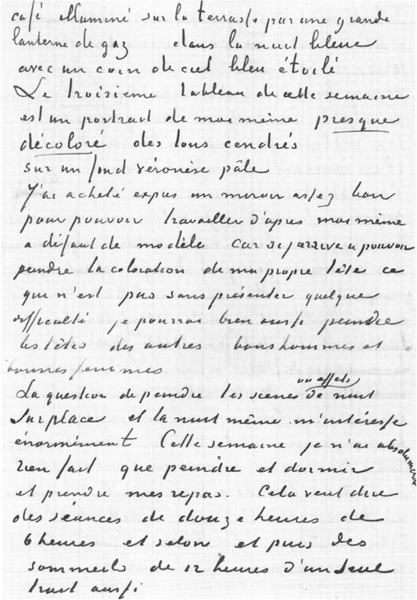 café illuminé sur la terrasse par une grande
lanterne de gaz dans la nuit bleue
avec un coin de ciel bleu étoilé
Le troisieme tableau de cette semaine
est un portrait de moi même presque
décoloré des tons cendrés
sur un fond véronèse pâle
J'ai acheté exprès un miroir assez bon
pour pouvoir travailler d'après moi même
a défaut de modèle car si j'arrive a pouvoir
peindre la coloration de ma propre tête ce
qui n'est pas sans présenter quelque
difficulté je pourrai bien aussi peindre
les têtes des autres bonshommes et
bonnes femmes
ou effets
La question de peindre les scènes de nuit
sur place et la nuit même m'intéresse
énormément Cette semaine je n'ai absolument
rien fait que peindre et dormir
et prendre mes repas. Cela veut dire
des séances de douze heures de
6 heures et selon et puis des
sommeils de 12 heures d'un seul
trait aussi